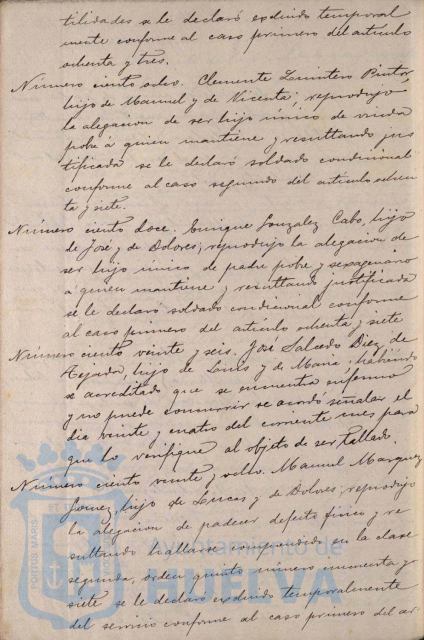 tilidades se le declaró excluido temporal
mente conforme al caso primero del artículo
ochenta y tres.
Número ciento ocho. Clemente Quintero Pintor,
hijo de Manuel y de Vicenta; reprodujo
la alegacion de ser hijo único de viuda
pobre á quien mantiene y resultando jus
tificada se le declaró soldado condicional
conforme al caso segundo del artículo ochen
ta y siete.
Número ciento doce. Enrique Gonzalez Cabo, hijo
de José y de Dolores; reprodujo la alegacion de
ser hijo único de padre pobre y sexagenario
á quien mantiene y resultando justificada
se le declaró soldado condicional conforme
al caso primero del artículo ochenta y siete
Número ciento veinte y seis. José Salcedo Diez de
Tejada, hijo de Louis y de Maria; habiendo
se acreditado que se encuentra enfermo
y no puede concurrir se acordó señalar el
dia veinte y cuatro del corriente mes para
que lo verifique al objeto de ser tallado.
Número ciento veinte y ocho. Manuel Marquez
Gomez, hijo de Lucas y de Dolores; reprodujo
la alegacion de padecer defecto físico y re
sultando hallarse comprendido en la clase
segunda, orden quinto número cincuenta y
siete se le declaró excluido temporalmente
del servicio conforme al caso primero del ar
PORTUS MARIS
Ayuntamiento de
HUELVA